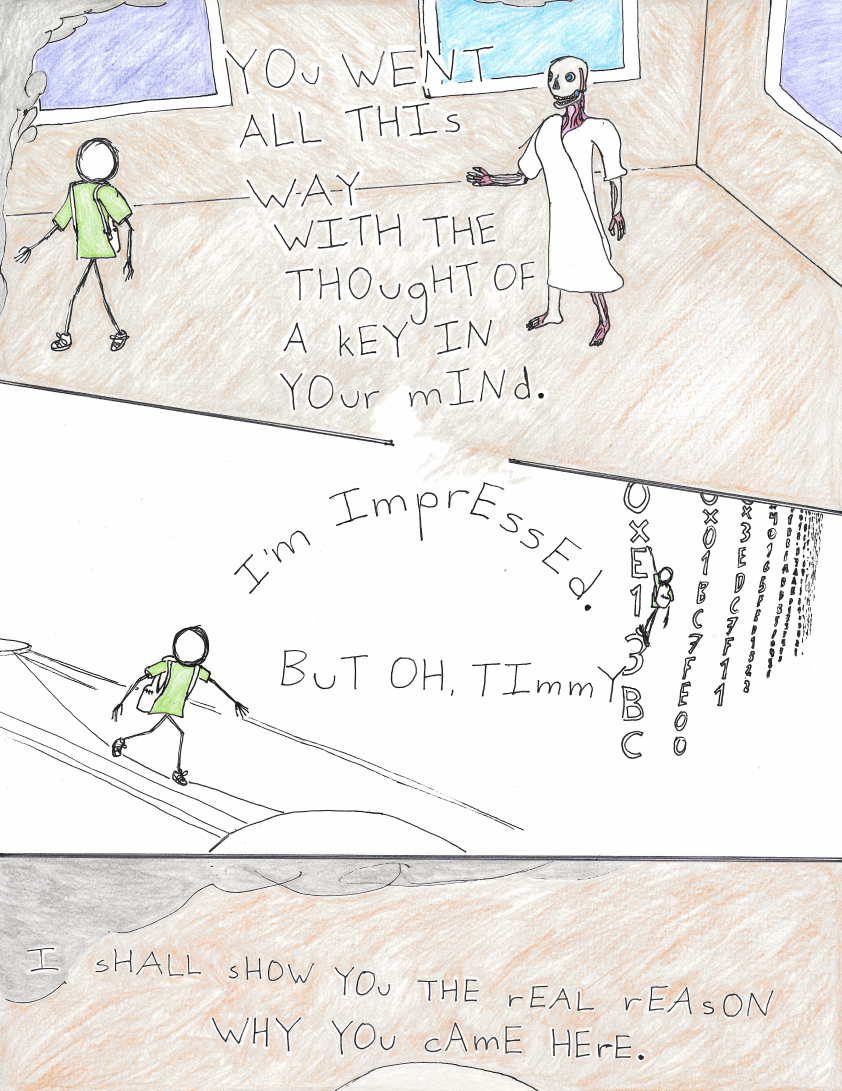 YOu WENT
ALL THIs
WAY
WITH THE
THOugHT OF
A kEY IN
YOur mINd.
I'm ImprEssEd.
BuT OH, TImmY
0xE13BC
0x01BC7FE00
0x3EDC7F11
I sHALL sHOW YOu THE rEAL rEAsON
WHY YOu cAmE HErE.